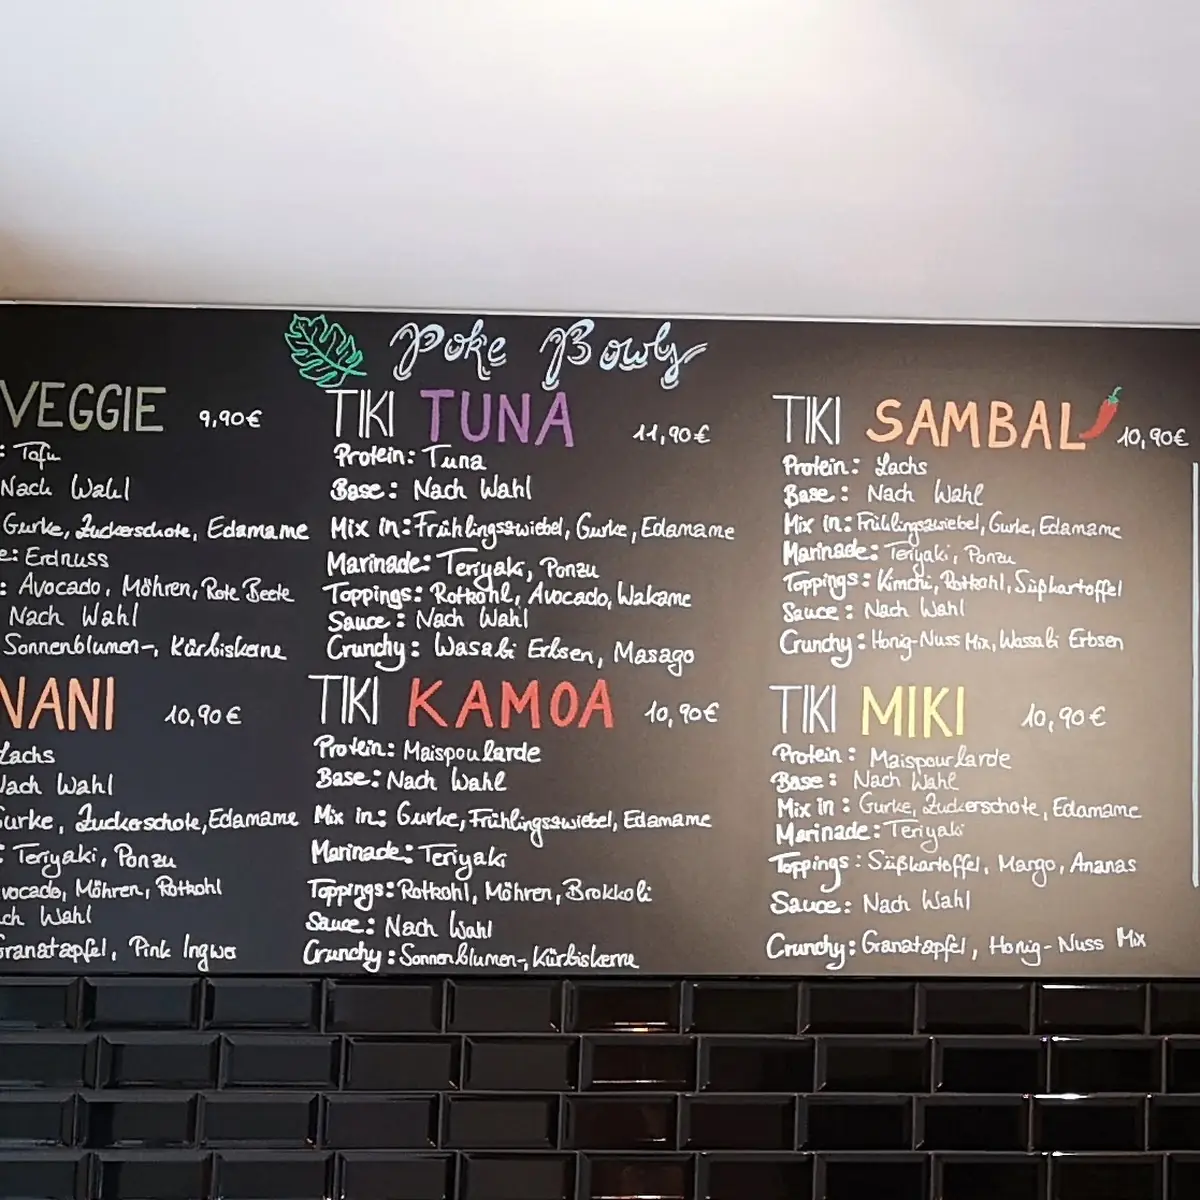 Poke Bowls
VEGGIE 9,90€
: Tofu
Nach Wahl
Gurke, Zuckerschote, Edamame
e: Erdnuss
: Avocado, Möhren, Rote Beete
Nach Wahl
Sonnenblumen-, Kürbiskerne
TIKI TUNA 11,90€
Protein: Tuna
Base: Nach Wahl
Mix in: Frühlingszwiebel, Gurke, Edamame
Marinade: Teriyaki, Ponzu
Toppings: Rotkohl, Avocado, Wakame
Sauce: Nach Wahl
Crunchy: Wasabi Erbsen, Masago
TIKI SAMBAL 10,90€
Protein: Lachs
Base: Nach Wahl
Mix in: Frühlingszwiebel, Gurke, Edamame
Marinade: Teriyaki, Ponzu
Toppings: Kimchi, Rotkohl, Süßkartoffel
Sauce: Nach Wahl
Crunchy: Honig-Nuss Mix, Wasabi Erbsen
NANI 10,90€
Lachs
Nach Wahl
Gurke, Zuckerschote, Edamame
: Teriyaki, Ponzu
vocado, Möhren, Rotkohl
ch Wahl
Granatapfel, Pink Ingwer
TIKI KAMOA 10,90€
Protein: Maispoularde
Base: Nach Wahl
Mix in: Gurke, Frühlingszwiebel, Edamame
Marinade: Teriyaki
Toppings: Rotkohl, Möhren, Brokkoli
Sauce: Nach Wahl
Crunchy: Sonnenblumen-, Kürbiskerne
TIKI MIKI 10,90€
Protein: Maispourlarde
Base: Nach Wahl
Mix in: Gurke, Zuckerschote, Edamame
Marinade: Teriyaki
Toppings: Süßkartoffel, Margo, Ananas
Sauce: Nach Wahl
Crunchy: Granatapfel, Honig-Nuss Mix